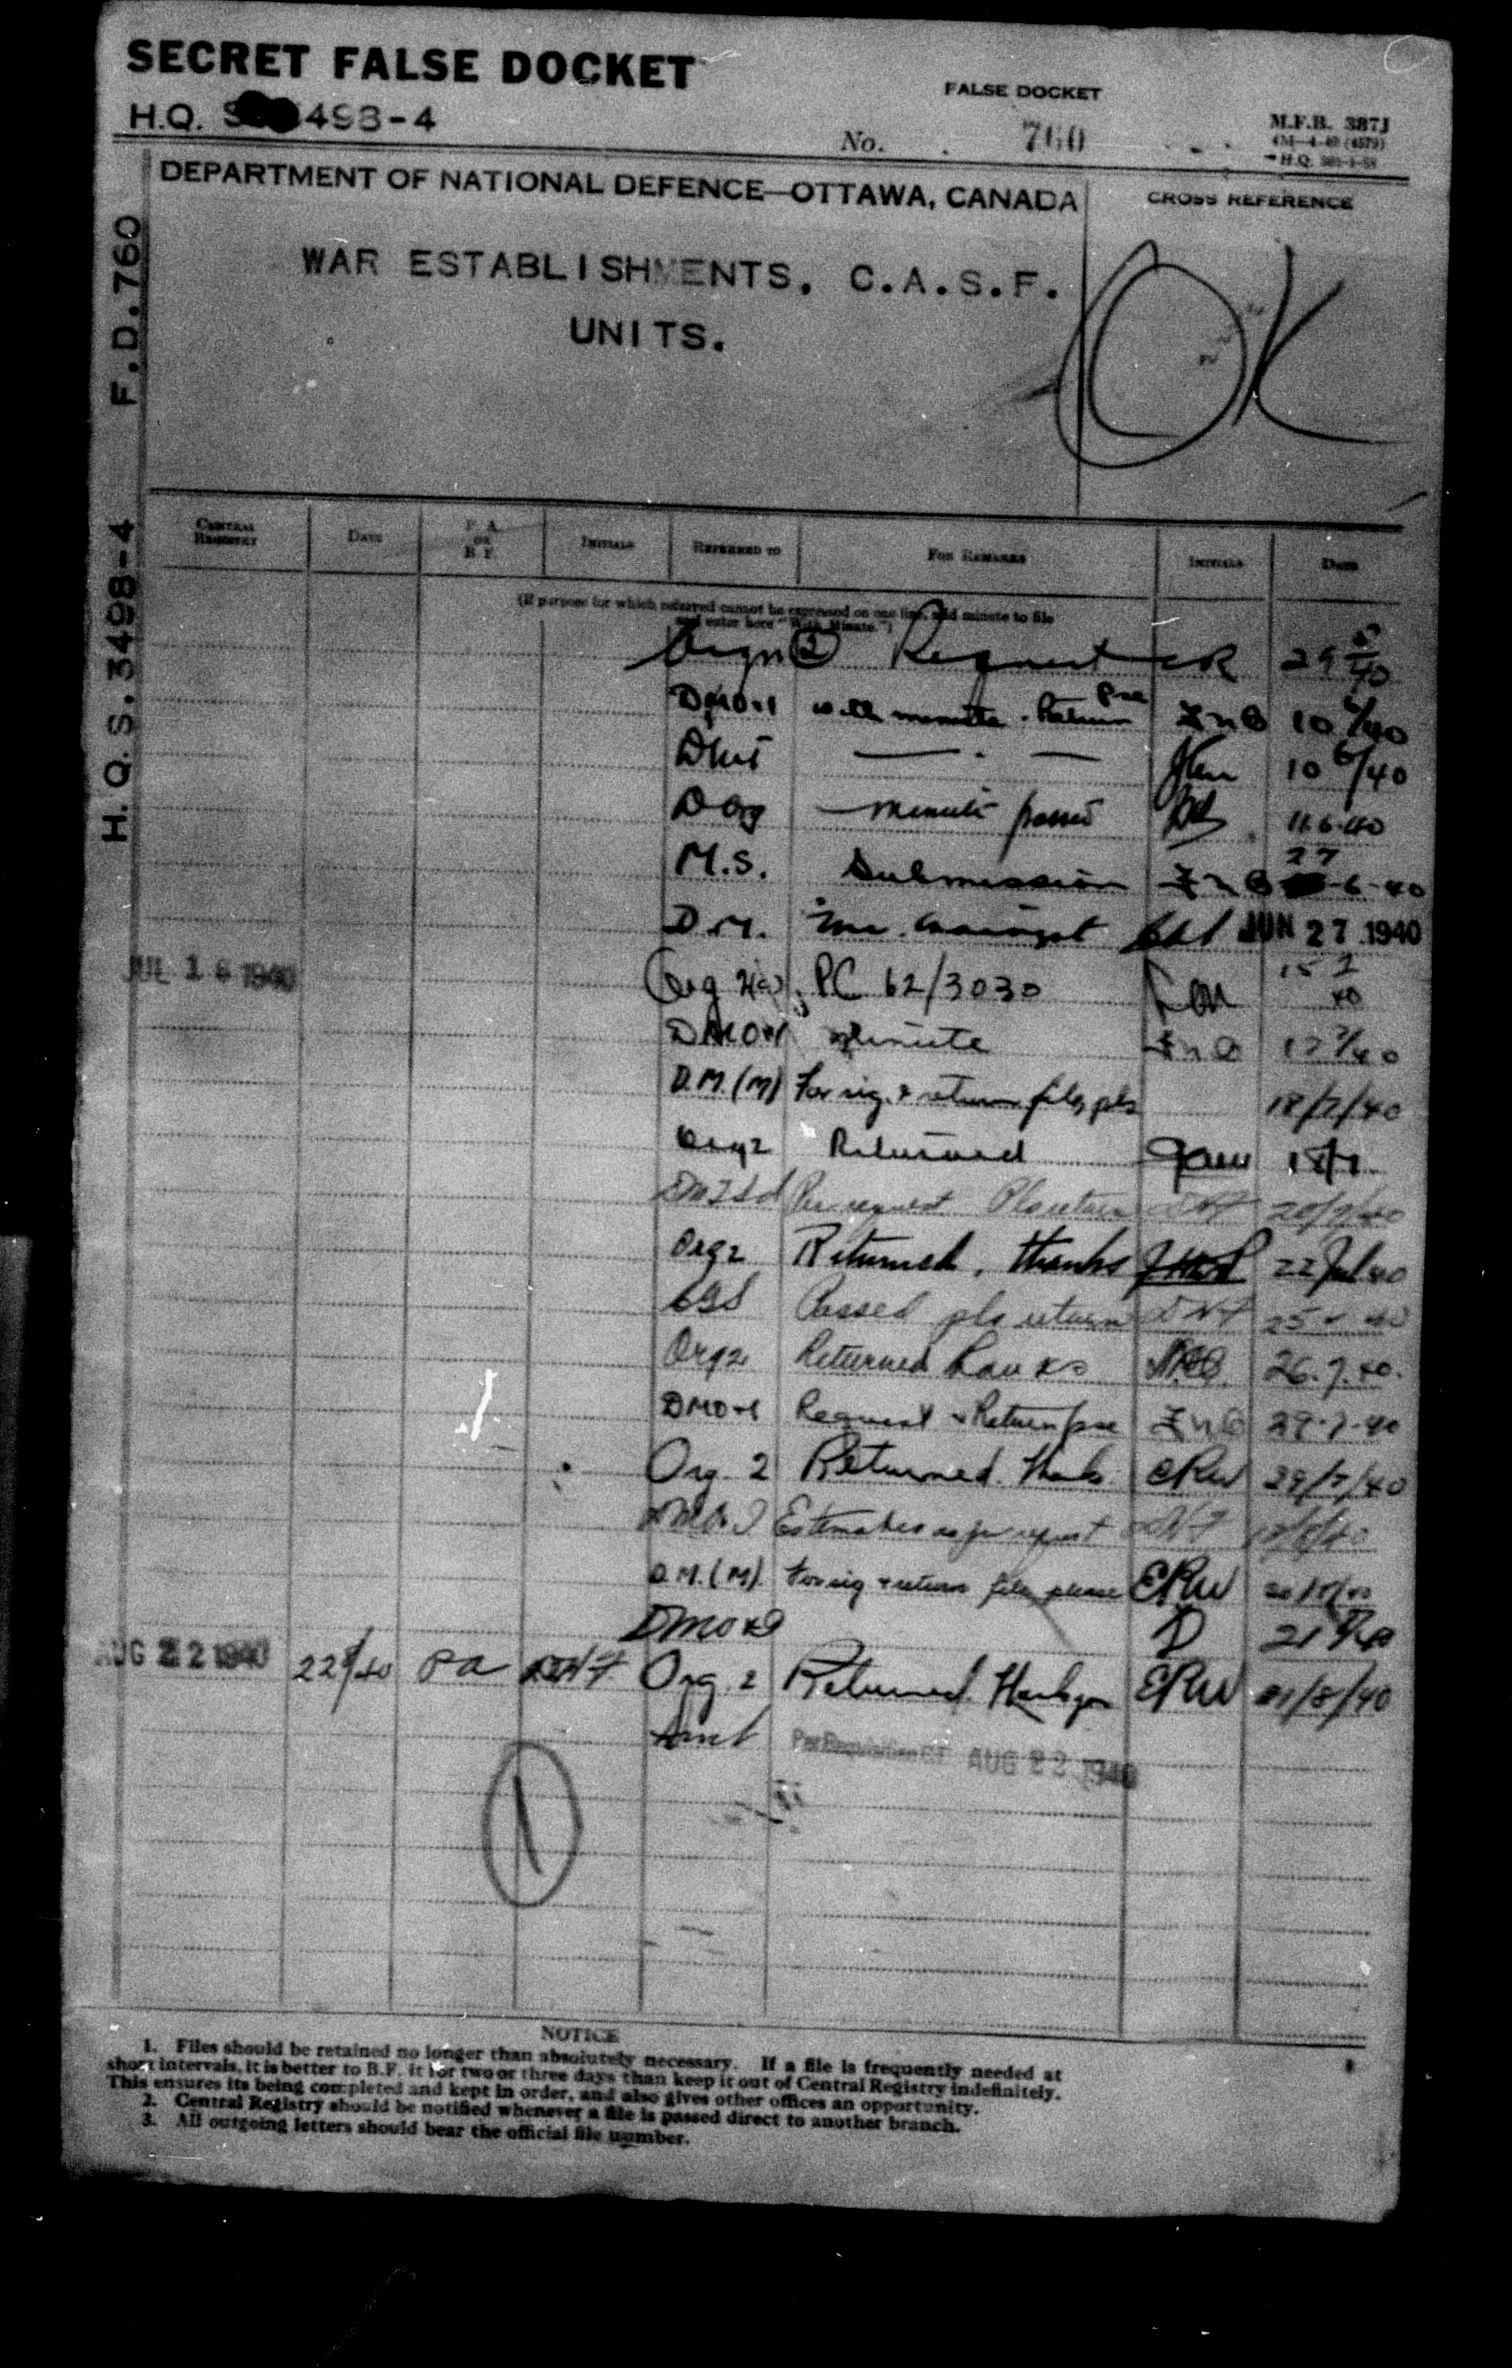 SECRET FALSE DOCKET
FALSE DOCKET
H.Q. S 498-4
No. 760
M.F.B. 387J
DEPARTMENT OF NATIONAL DEFENCE—OTTAWA, CANADA
CROSS REFERENCE
WAR ESTABLISHMENTS, C.A.S.F.
UNITS.
OK
F.D.760
H.Q.S.3498-4
CENTRAL REGISTRY
DATE
P. A. OR B. F.
INITIALS
REFERRED TO
FOR REMARKS
INITIALS
DATE
(If purpose for which referred cannot be expressed on one line, add minute to file
and enter here "With Minute.")
Orgn 2 Request
DMO&I with minute. Return pse 10 6/40
— . — 10 6/40
D Org — minute passed 11.6.40
M.S. Submission 27 -6-40
D.M. JUN 27 1940
JUL 16 1940 Org 2(a) PC 62/3030 15 7 40
DMO&I Minute 17 7/40
D.M.(M) For sig. & return file, pls 18/7/40
Org2 Returned 18/7
Per request Pls return DNF 20/7/40
Org2 Returned, thanks 22 Jul 40
CGS Passed pls return DNF 25 40
Org2 Returned thanks 26.7.40.
DMO&I Request & Return pse 29-7-40
Org. 2 Returned. Thanks ERW 29/7/40
DMO&I Estimates as per request DNF
D.M.(M). For sig & return file please ERW
DMO&I D 21 8/40
AUG 22 1940 22 8/40 PA DNF Org. 2 Returned. Thank you ERW 21/8/40
Per Requisition AUG 22 1940
1
NOTICE
1. Files should be retained no longer than absolutely necessary. If a file is frequently needed at
short intervals, it is better to B.F. it for two or three days than keep it out of Central Registry indefinitely.
This ensures its being completed and kept in order, and also gives other offices an opportunity.
2. Central Registry should be notified whenever a file is passed direct to another branch.
3. All outgoing letters should bear the official file number.